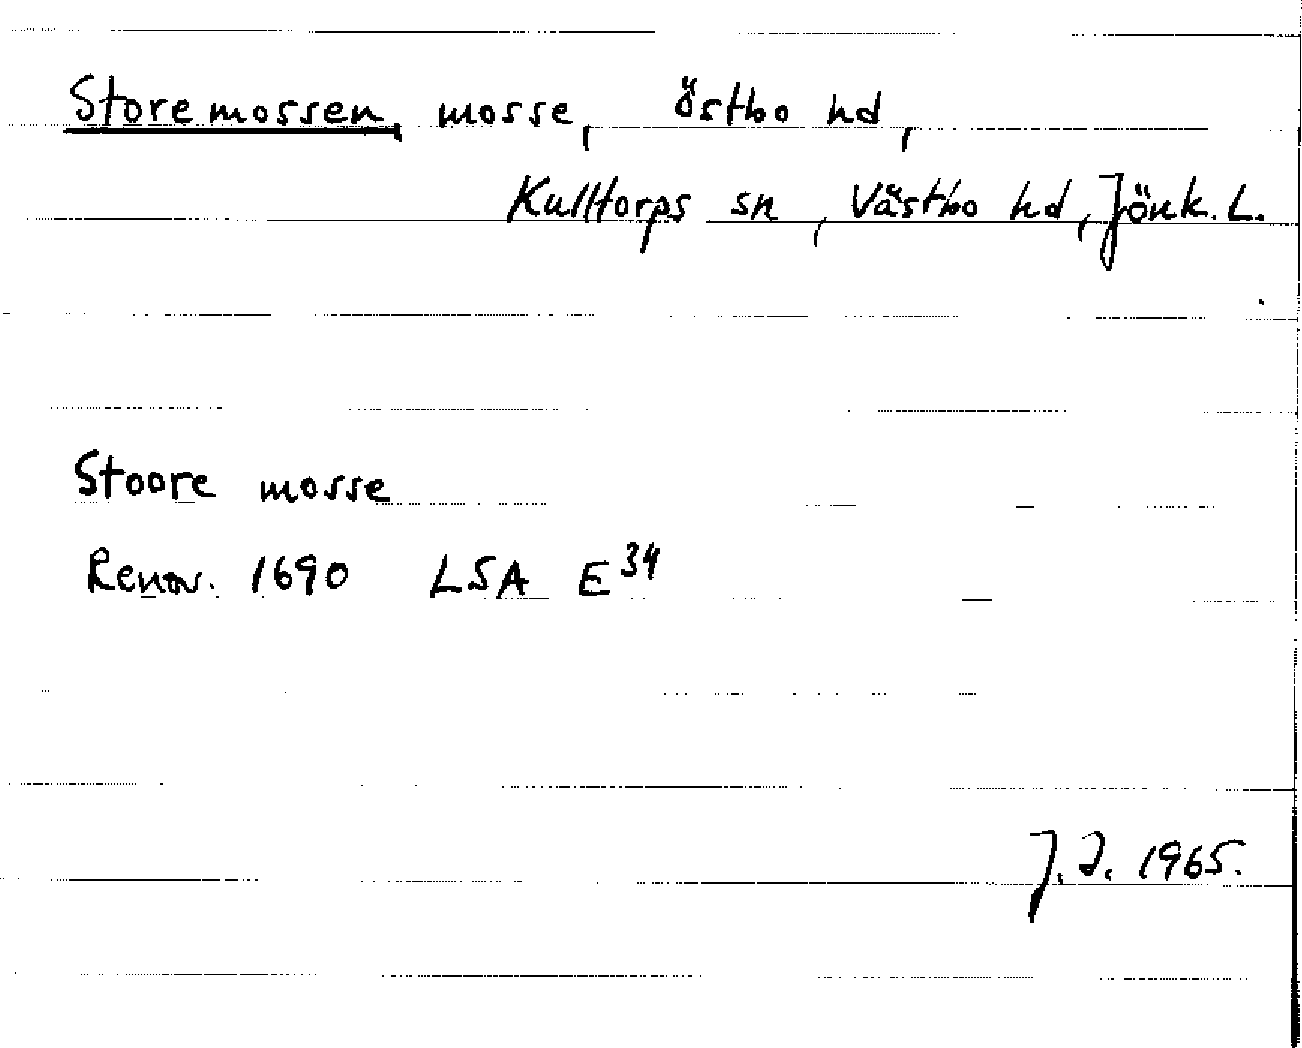 Storemossen, mosse, östbo hd,
Kulltorps sn, Västbo hd, Jönk. L.
Stoore mosse
Renov. 1690 LSA E34
J.I. 1965.